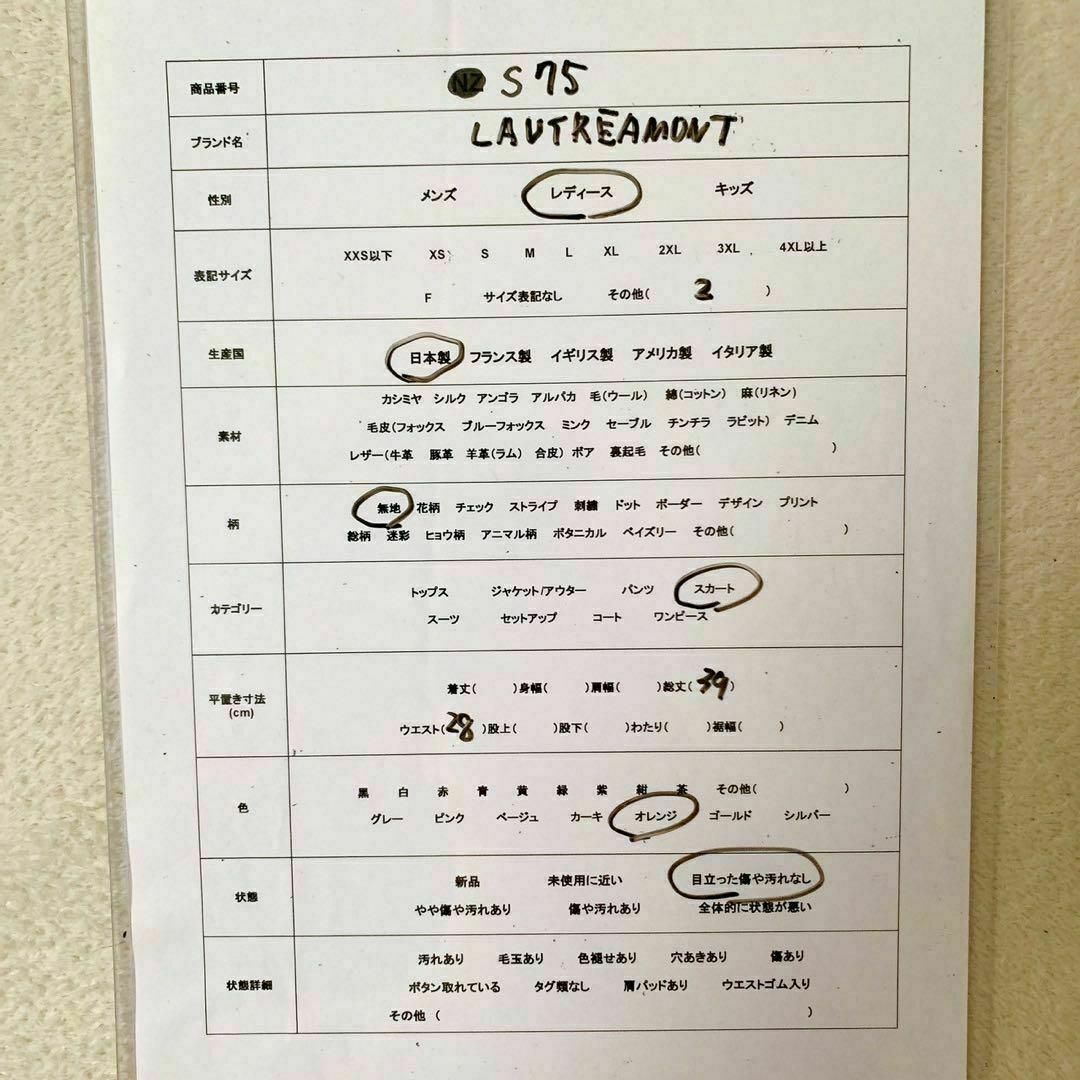 商品番号 NZ S75
ブランド名 LAUTRĒAMONT
性別 メンズ レディース キッズ
表記サイズ
XXS以下 XS S M L XL 2XL 3XL 4XL以上
F サイズ表記なし その他( 2 )
生産国 日本製 フランス製 イギリス製 アメリカ製 イタリア製
素材
カシミヤ シルク アンゴラ アルパカ 毛(ウール) 綿(コットン) 麻(リネン)
毛皮(フォックス ブルーフォックス ミンク セーブル チンチラ ラビット) デニム
レザー(牛革 豚革 羊革(ラム) 合皮) ボア 裏起毛 その他( )
柄
無地 花柄 チェック ストライプ 刺繍 ドット ボーダー デザイン プリント
総柄 迷彩 ヒョウ柄 アニマル柄 ボタニカル ペイズリー その他( )
カテゴリー
トップス ジャケット/アウター パンツ スカート
スーツ セットアップ コート ワンピース
平置き寸法
(cm)
着丈( )身幅( )肩幅( )総丈( 39 )
ウエスト( 28 )股上( )股下( )わたり( )裾幅( )
色
黒 白 赤 青 黄 緑 紫 紺 茶 その他( )
グレー ピンク ベージュ カーキ オレンジ ゴールド シルバー
状態
新品 未使用に近い 目立った傷や汚れなし
やや傷や汚れあり 傷や汚れあり 全体的に状態が悪い
状態詳細
汚れあり 毛玉あり 色褪せあり 穴あきあり 傷あり
ボタン取れている タグ類なし 肩パッドあり ウエストゴム入り
その他 ( )